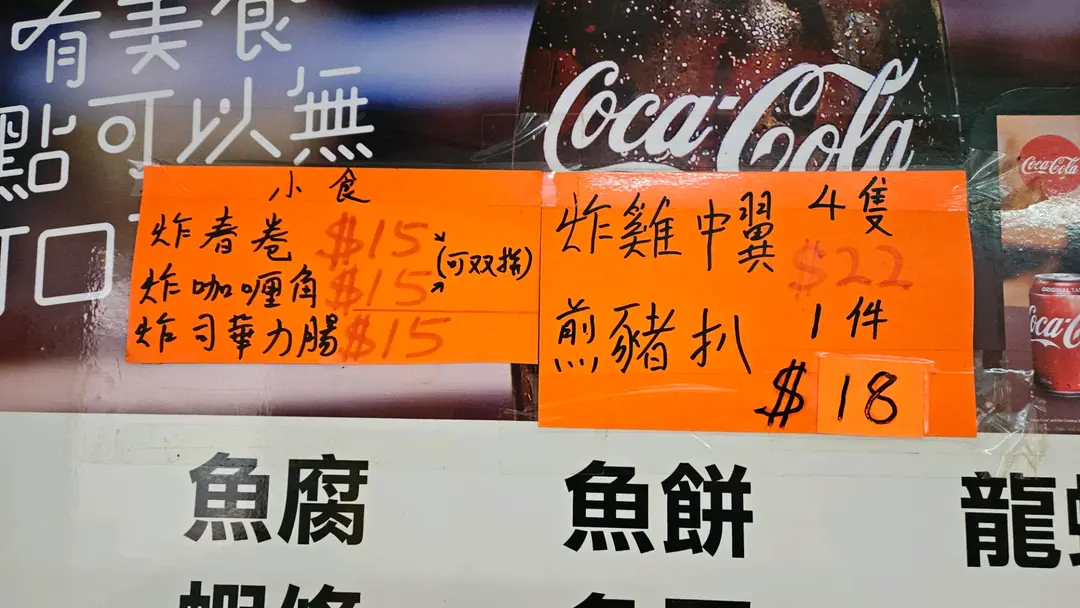 有美食
點可以無
可口
Coca-Cola
小食
炸春卷 $15
炸咖喱角 $15 (可双拼)
炸司華力腸 $15
炸雞中翼 4隻
$22
煎豬扒 1件
$18
Coca-Cola
ORIGINAL TA
Coca-C
魚腐
魚餅
龍
蝦條